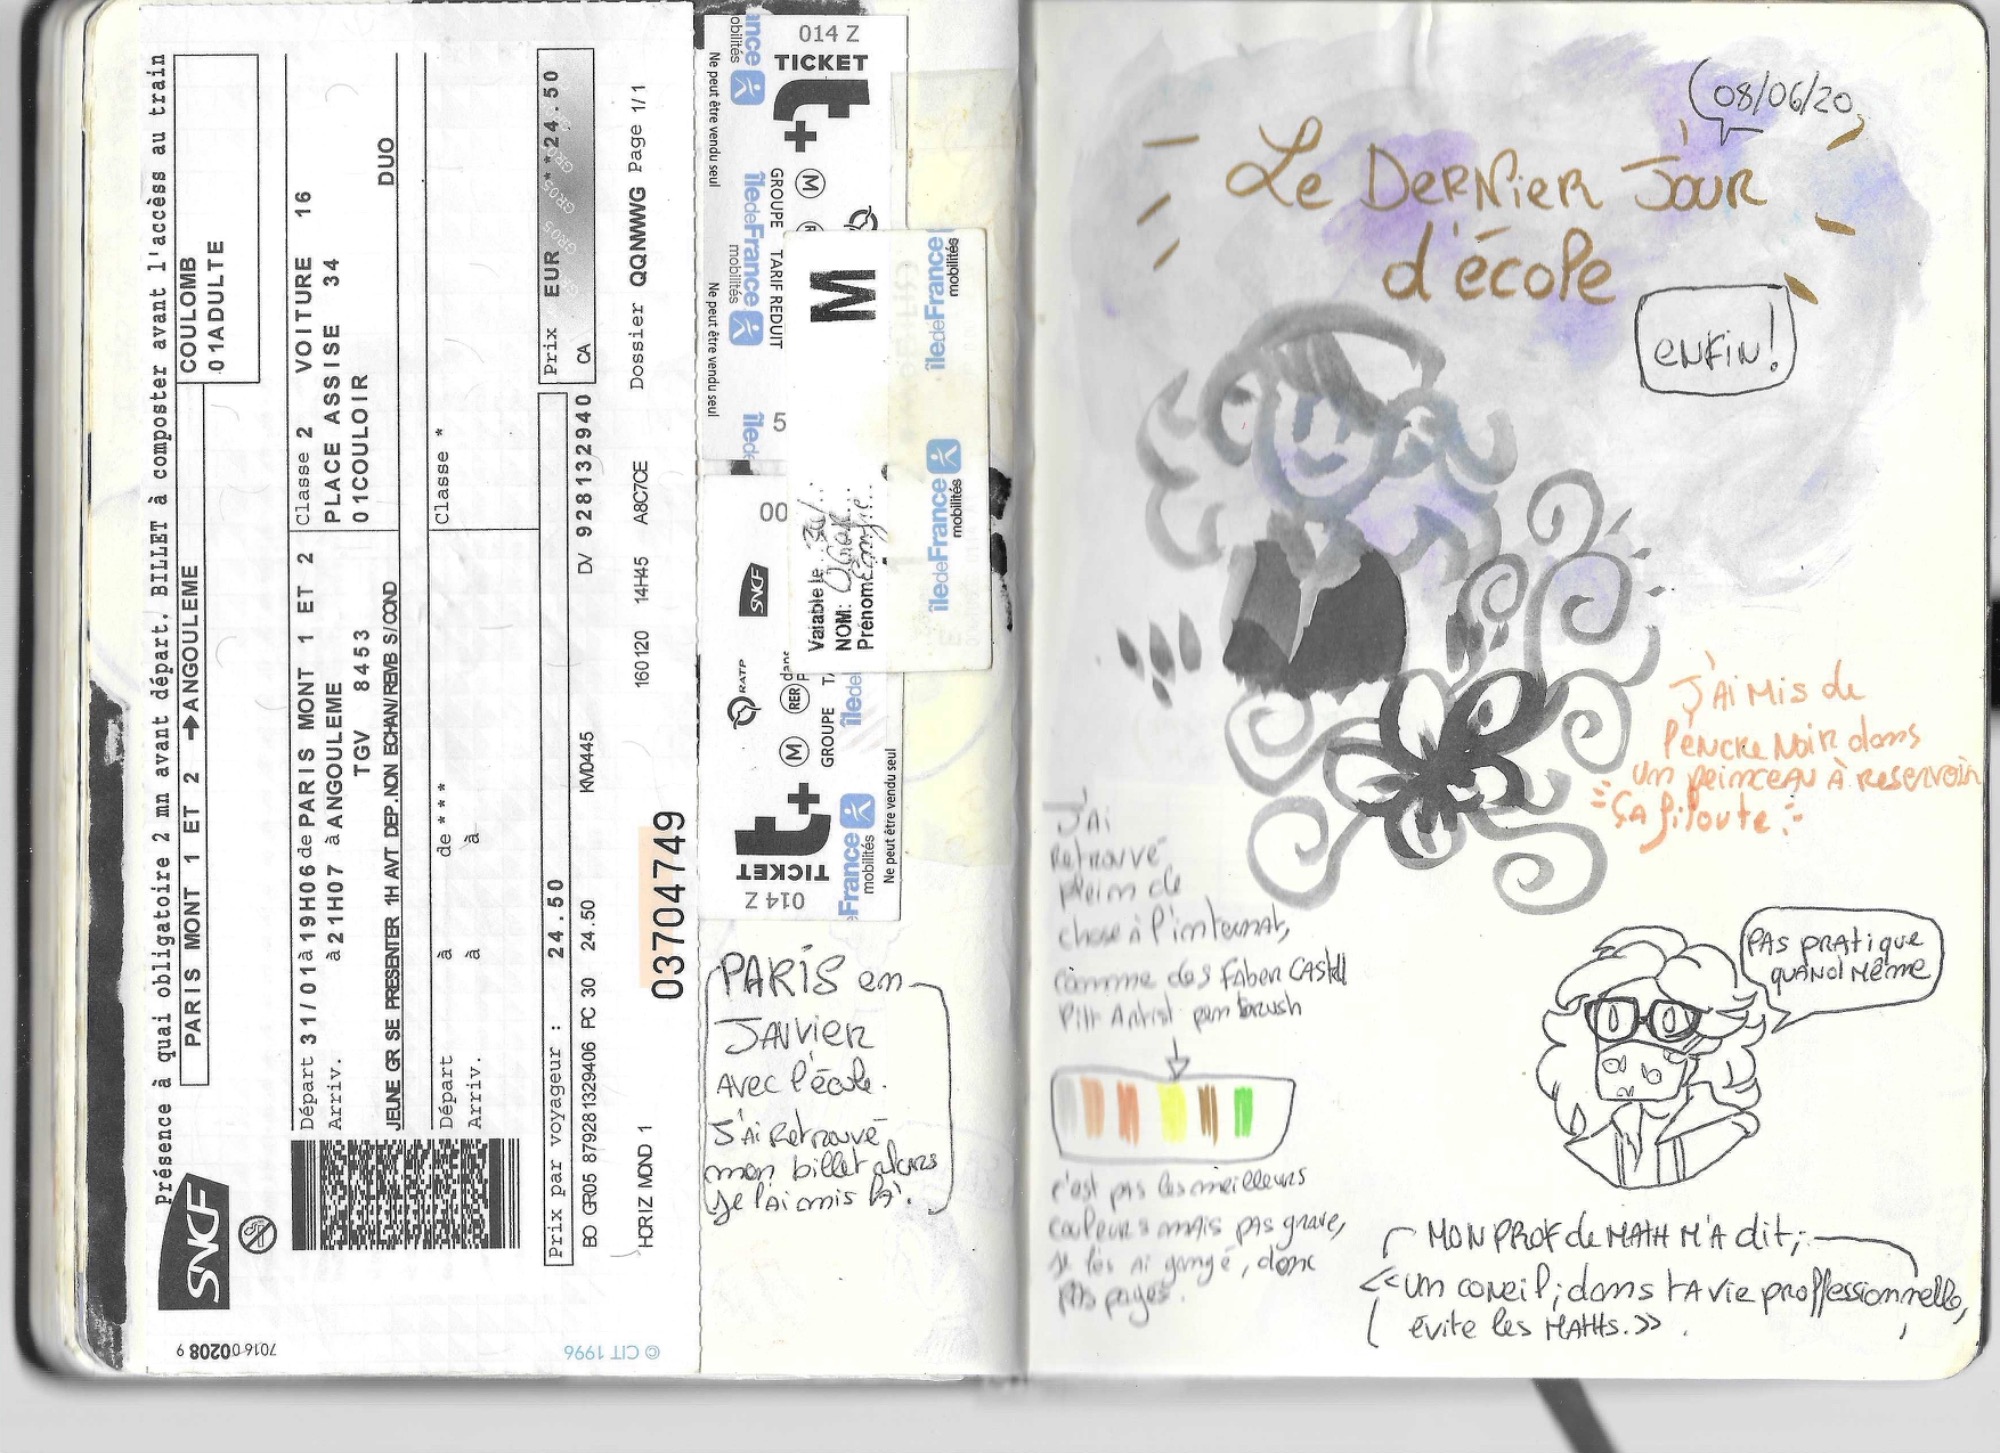 Présence à quai obligatoire 2 mn avant départ. BILLET à composter avant l'accès au train
SNCF
PARIS MONT 1 ET 2 ➔ANGOULEME
COULOMB
01ADULTE
Départ 31/01 à 19H06 de PARIS MONT 1 ET 2
Arriv. à 21H07 à ANGOULEME
TGV 8453
JEUNE GR SE PRESENTER 1H AVT DEP. NON ECHAN/REMB S/COND
Classe 2 VOITURE 16
PLACE ASSISE 34
01COULOIR
DUO
Départ à de ****
Arriv. à à
Classe *
Prix par voyageur : 24.50
Prix EUR **24.50
GR05 GR05
BO GR05 879281329406 PC 30 24.50
KM0445
DV 928132940
CA
HORIZ MOND 1
160120 14H45 A8C7CE
Dossier QQNWWG Page 1/1
03704749
7016-00208 9
© CIT 1996
014 Z
TICKET
t+
GROUPE TARIF REDUIT
îledeFrance
mobilités
Ne peut être vendu seul
Ne peut être vendu seul
5
M
Valable le
NOM:
Prénom
îledeFrance
mobilités
îledeFrance
mobilités
00
SNCF
RATP
M RER
GROUPE
014 Z
TICKET
t+
France
mobilités
Ne peut être vendu seul
PARIS en
JANVIER
AVEC l'école.
J'Ai Retrouvé
mon billet alors
je l'Ai mis là.
08/06/20
Le DERNieR JOUR
d'école
ENFIN!
J'Ai Mis de
l'encre Noir dans
un peinceau à reservoir
ÇA filoute.
J'Ai
Retrouvé
plein de
chose à l'internat,
comme des FABER CAStell
Pitt Artist pen brush
c'est pas les meilleurs
couleurs mais pas grave,
je les ai gangé, donc
PAs payés.
PAS PRAtique
quand Même
MON PROF de MATH M'A dit,
<<un conseil; dans tA vie proffessionnelle,
évite les MAtHs.>>.